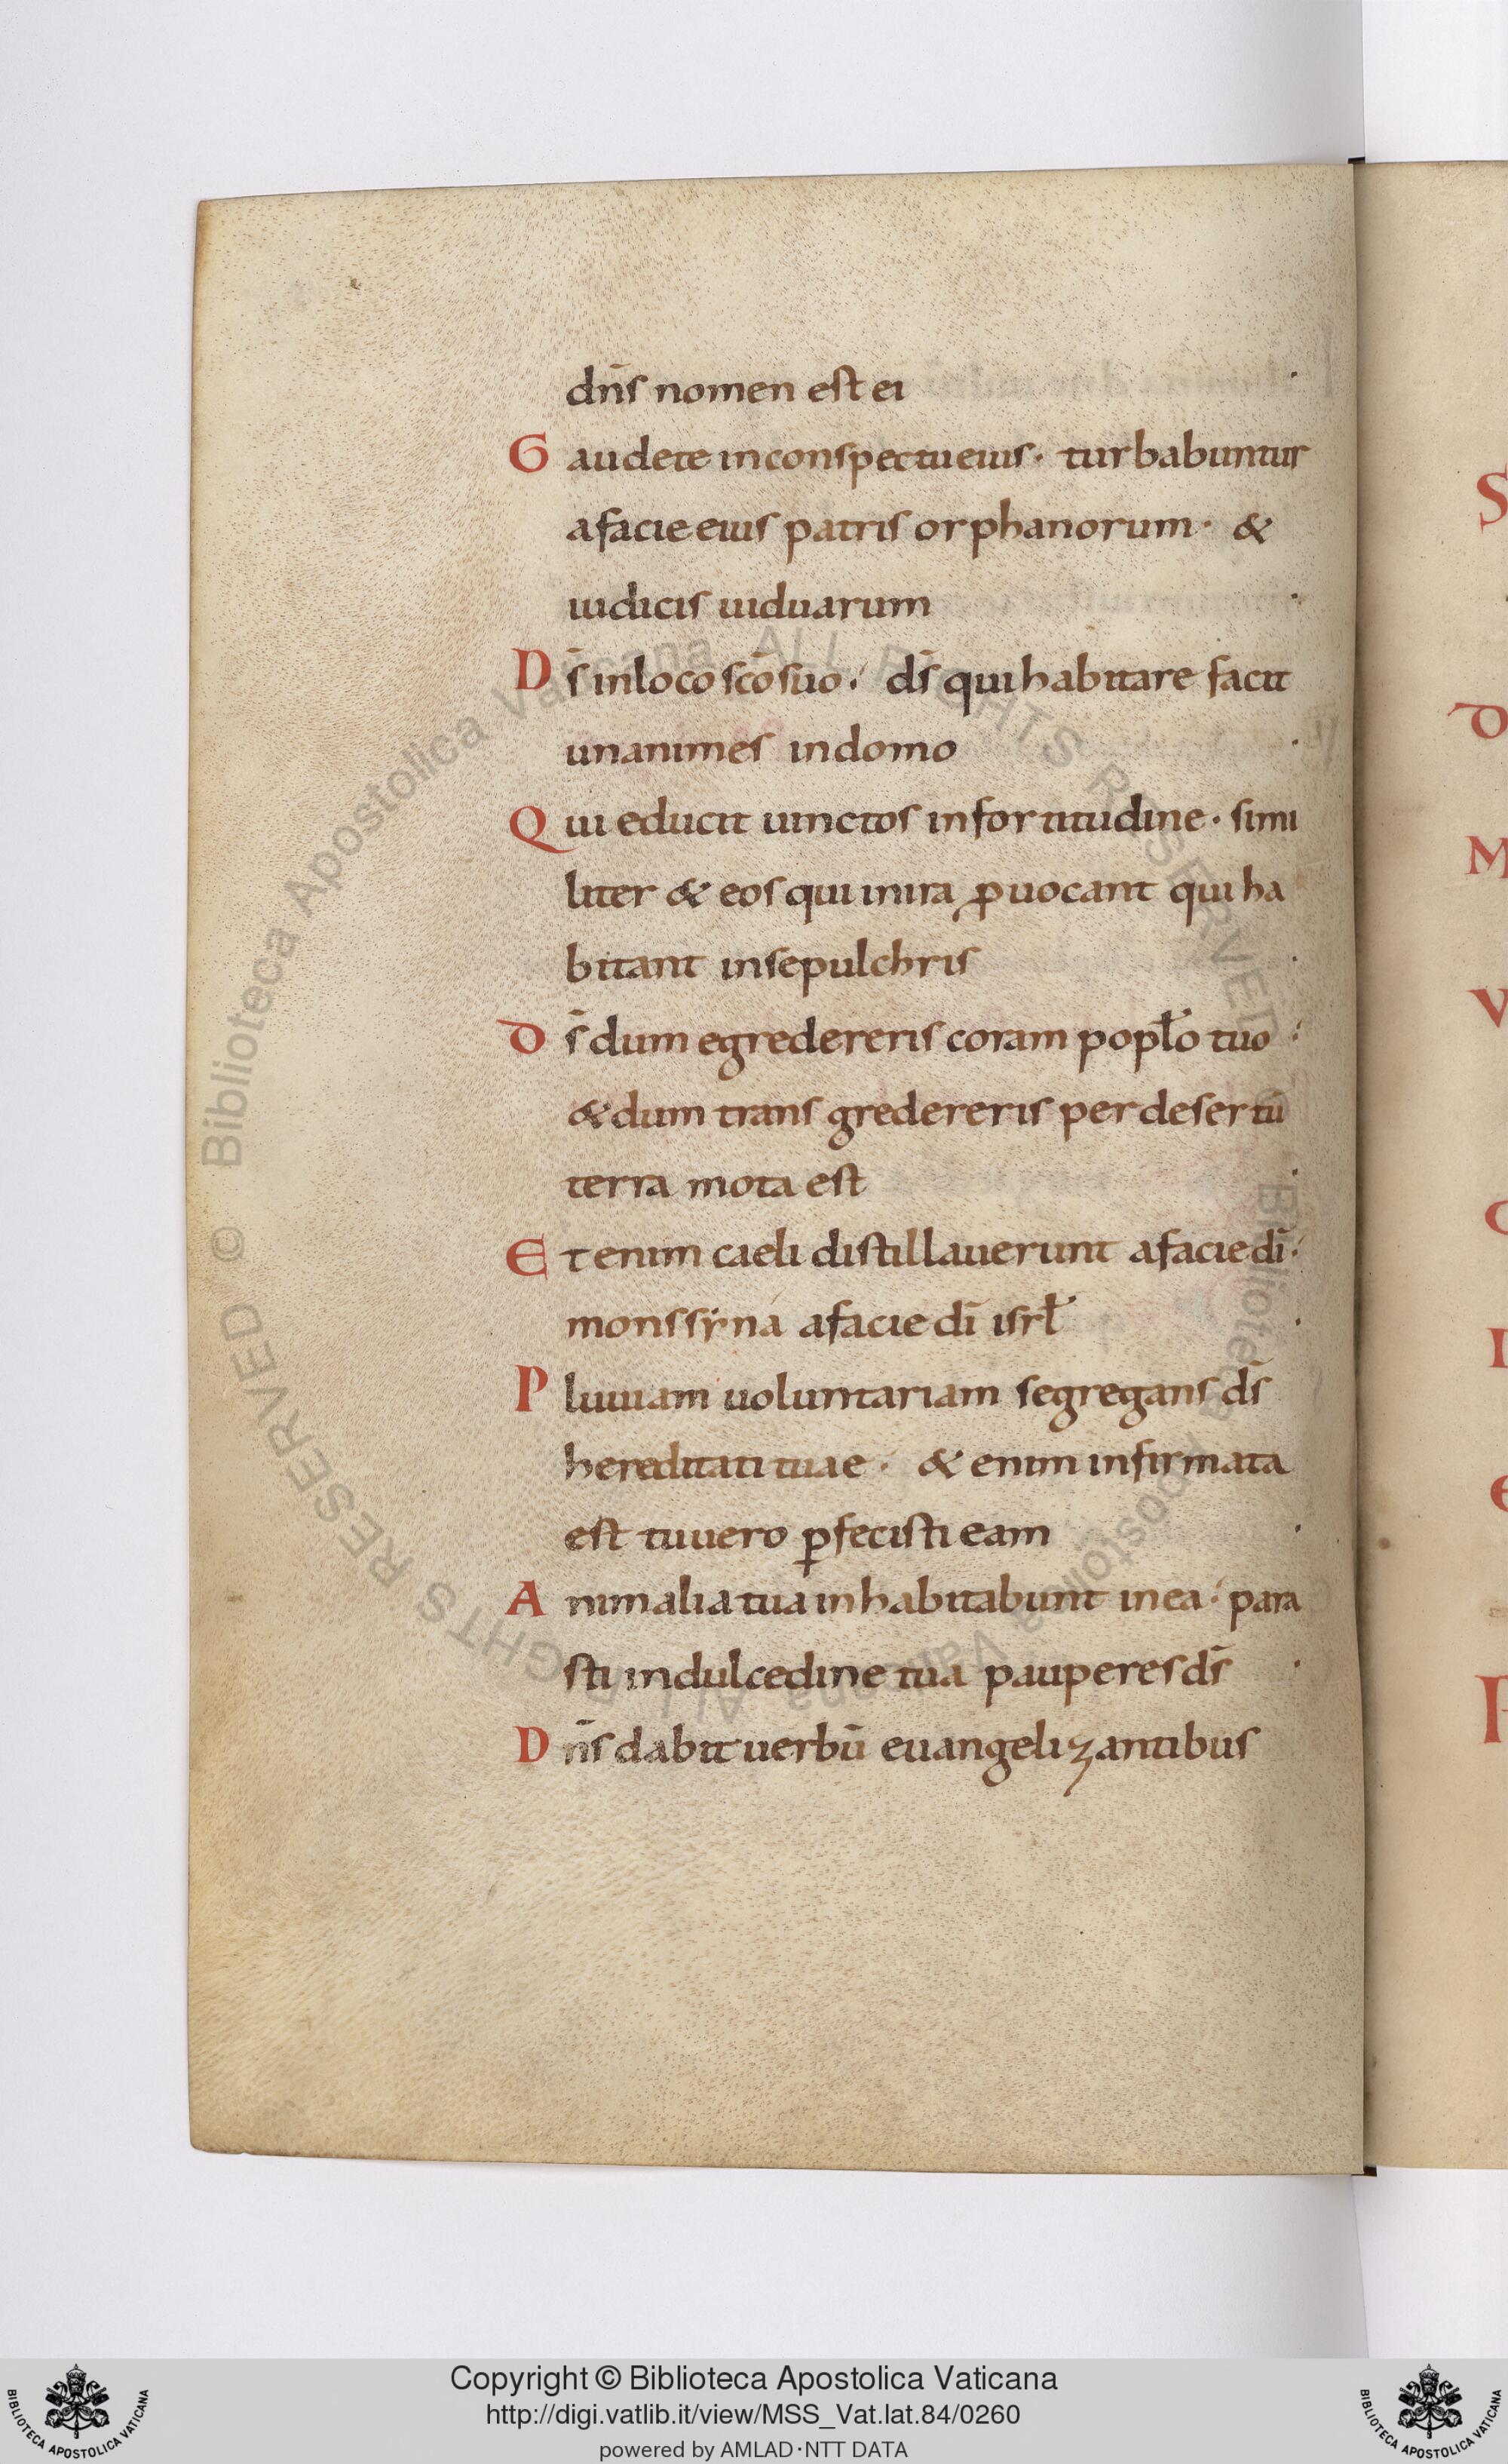 dn̄s nomen est ei ·
Gaudete inconspectueius · turbabuntur
afacieeius patris orphanorum · &
iudicis uiduarum ·
Ds̄ inloco scōsuo · ds̄ quihabitare facit
unanimes indomo ·
Qui educit uinctos infortitudine · simi
liter & eos qui inira ꝓuocant quiha
bitant insepulchris ·
Ds̄ dum egredereris coram popl̄o tuo ·
&dum trans gredereris perdesertū
terra mota est ·
Etenim caeli distillauerunt afaciedī ·
monssẏna afaciedī isrl̄ ·
Pluuiam uoluntariam segregans ds̄
hereditati tuae · &enim infirmata
est tuuero ꝑfecisti eam ·
Animalia tua inhabitabunt inea · para
sti indulcedine tua pauperes ds̄ ·
Dn̄s dabit uerbū euangelizantibus
S
d
M
V
I
e
© Biblioteca Apostolica Vaticana ALL RIGHTS RESERVED
© Biblioteca Apostolica Vaticana ALL RIGHTS RESERVED
Copyright © Biblioteca Apostolica Vaticana
http://digi.vatlib.it/view/MSS_Vat.lat.84/0260
powered by AMLAD·NTT DATA
BIBLIOTECA APOSTOLICA VATICANA
BIBLIOTECA APOSTOLICA VATICANA